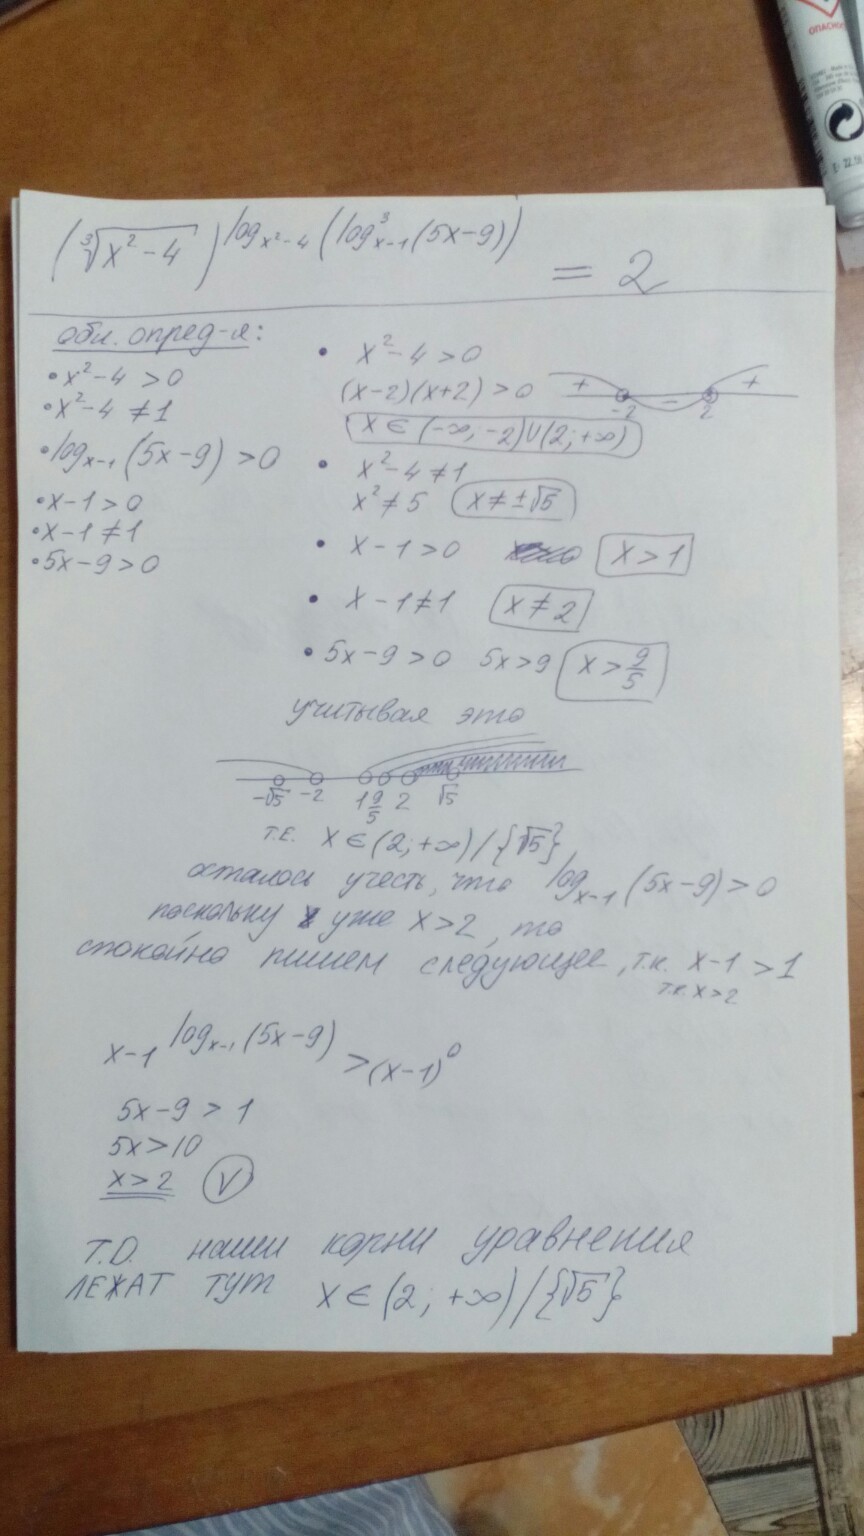 (∛(x²-4))^log_{x²-4}(log³_{x-1}(5x-9)) = 2
обл. опред-я:
• x²-4 >0
• x²-4 ≠1
• log_{x-1}(5x-9) >0
• x-1 >0
• x-1 ≠1
• 5x-9 >0
• x²-4 >0
(x-2)(x+2) >0
+ - +
-2 2
x ∈ (-∞, -2)∪(2; +∞)
• x²-4 ≠1
x² ≠ 5 x ≠ ±√5
• x-1 >0 x > 1
• x-1 ≠ 1 x ≠ 2
• 5x-9 >0 5x >9 x > 9/5
учитывая это
-√5 -2 1 9/5 2 √5
т.е. x ∈ (2; +∞) / {√5}
осталось учесть, что log_{x-1}(5x-9) >0
поскольку уже x >2, то
спокойно пишем следующее, т.к. x-1 >1
т.к. x>2
x-1^log_{x-1}(5x-9) > (x-1)⁰
5x-9 > 1
5x >10
x >2 V
Т.О. наши корни уравнения
ЛЕЖАТ тут x ∈ (2; +∞) / {√5}
ОПАСНО